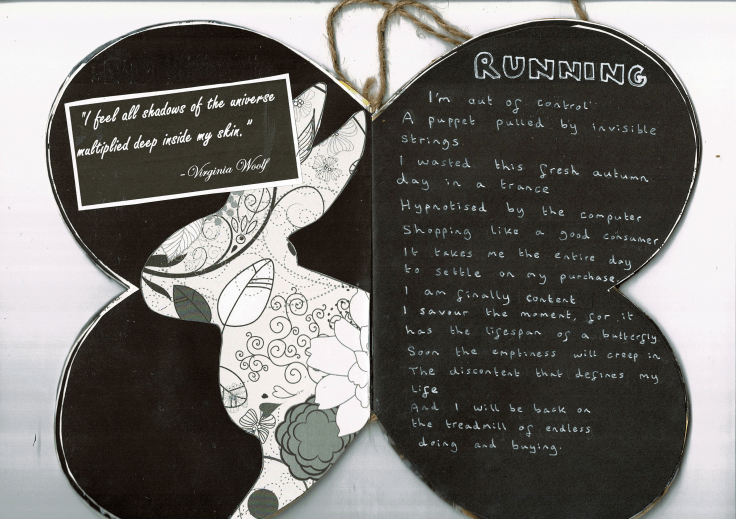 "I feel all shadows of the universe
multiplied deep inside my skin."
-Virginia Woolf
RUNNING
I'm out of control
A puppet pulled by invisible
strings.
I wasted this fresh autumn
day in a trance
Hypnotised by the computer
Shopping like a good consumer
It takes me the entire day
to settle on my purchase.
I am finally content
I savour the moment, for it
has the lifespan of a butterfly
Soon the emptiness will creep in
The discontent that defines my
life
And I will be back on
the treadmill of endless
doing and buying.